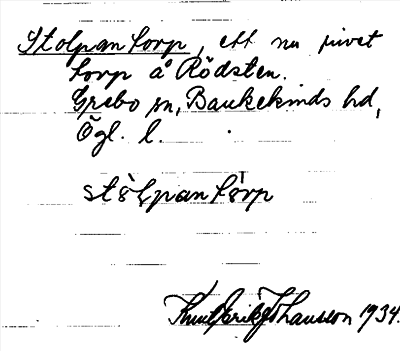 Stolpantorp, ett nu rivet
torp å Rödsten.
Grebo sn, Bankekinds hd,
Ögl. l.
stòlpantòrp
Knut Erik Johansson 1934.